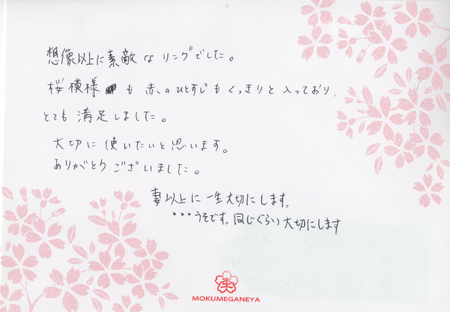 想像以上に素敵なリングでした。
桜模様も赤のひとすじもくっきりと入っており、
とても満足しました。
大切に使いたいと思います。
ありがとうございました。
妻以上に一生大切にします。
・・・うそです。同じぐらい大切にします
MOKUMEGANEYA